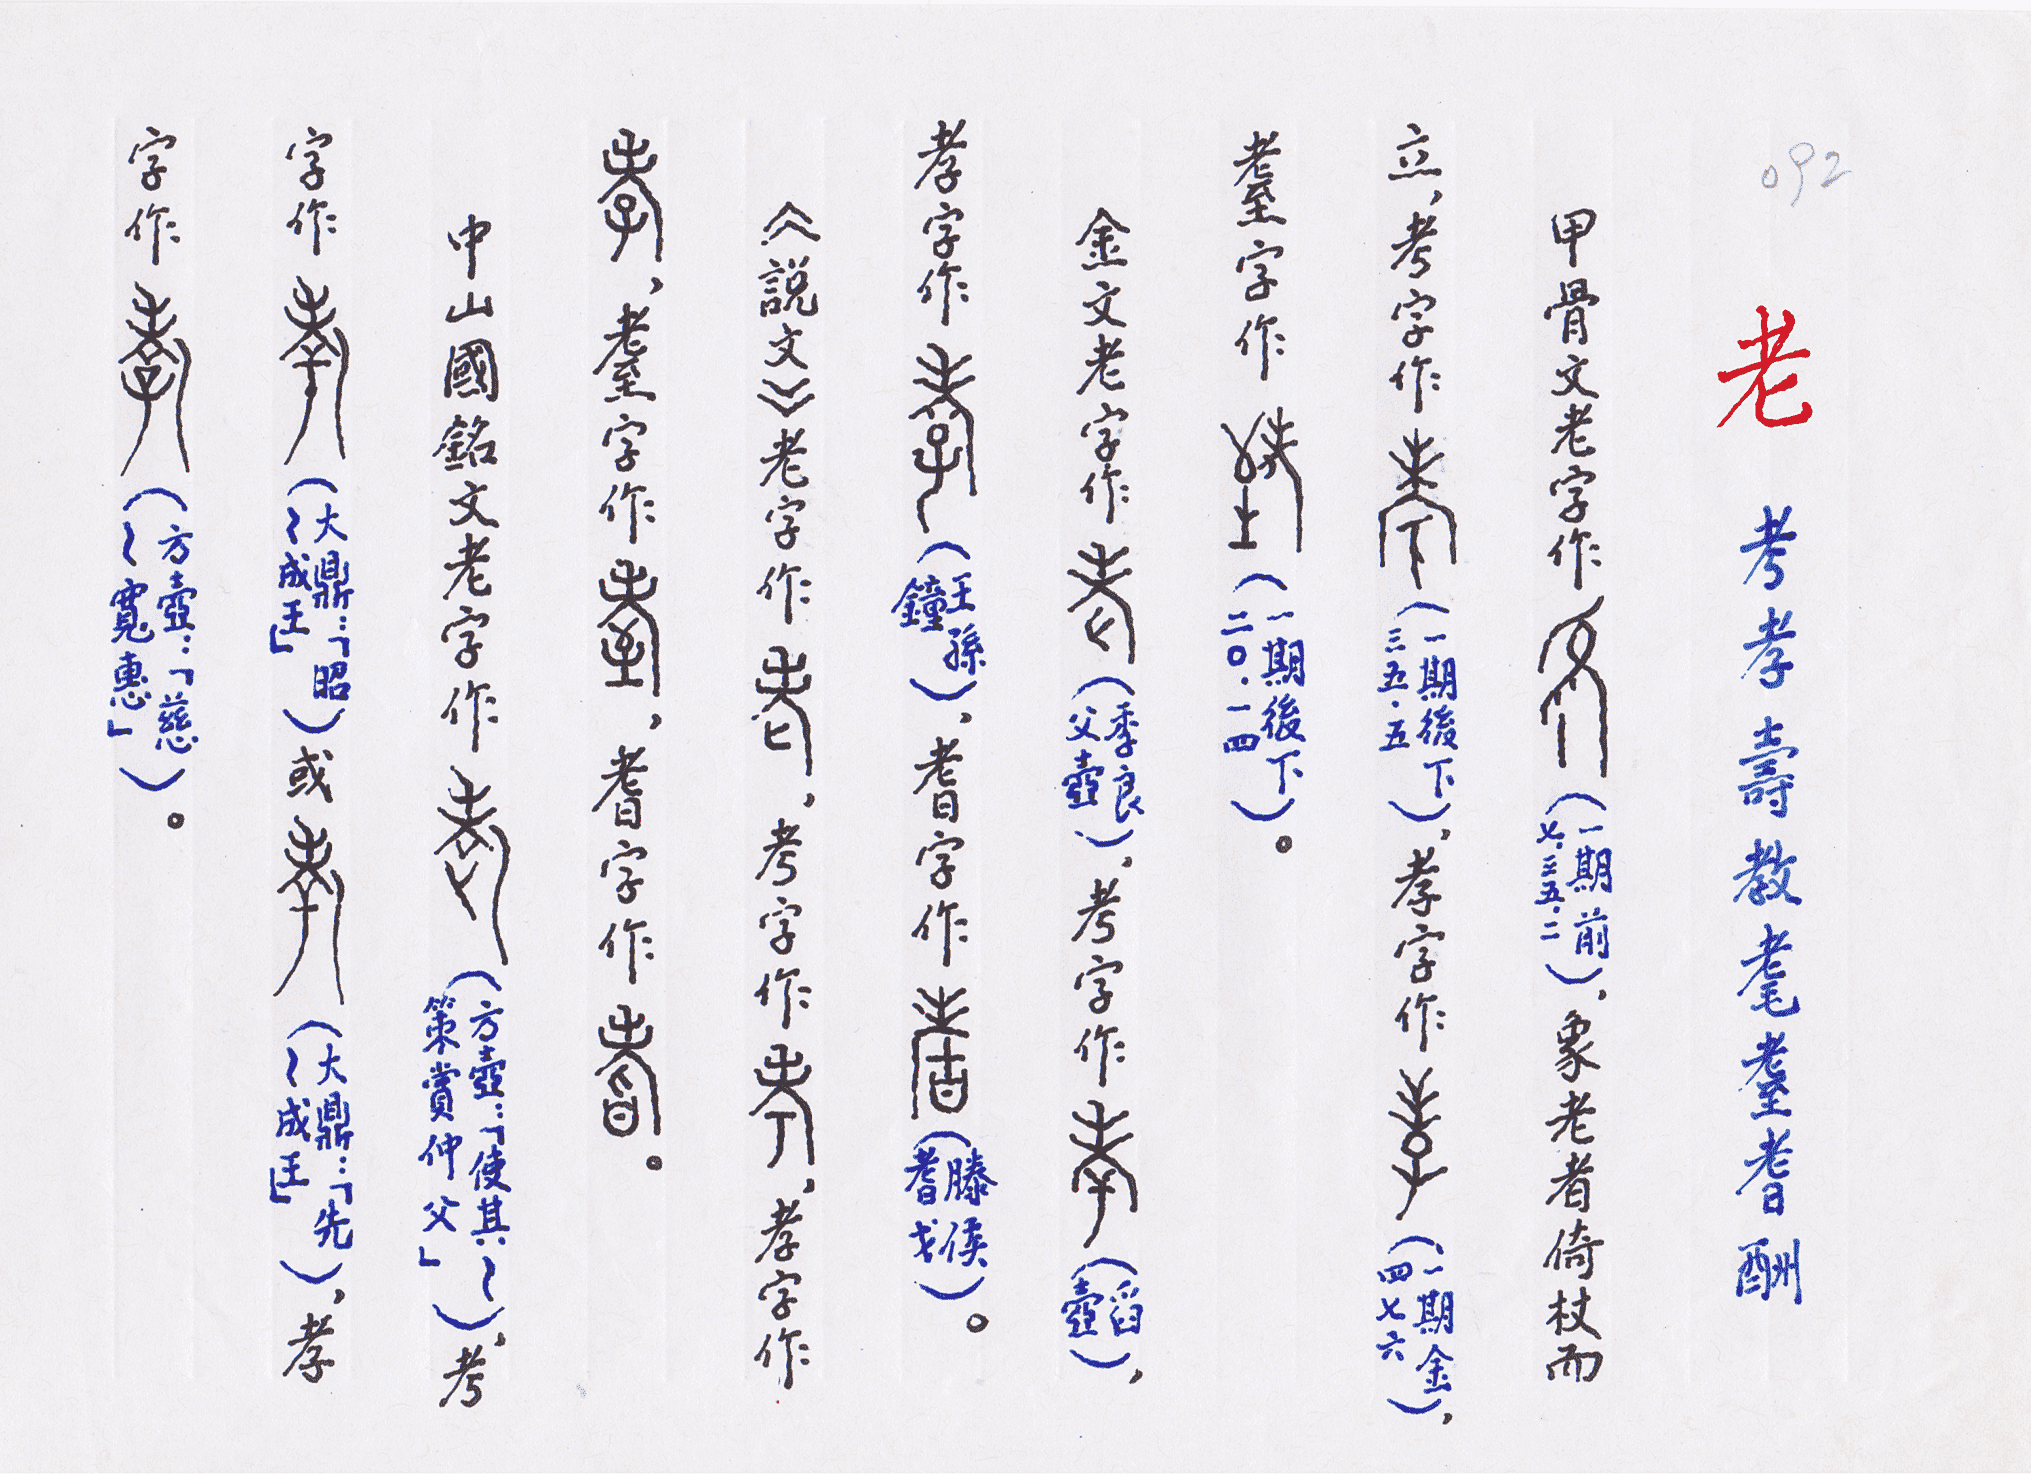 092
老 考孝壽教耄耋耆酬
甲骨文老字作（一期前七·三五·二），象老者倚杖而
立，考字作（一期後下三五·五），孝字作（一期金四七六），
耋字作（一期後下二〇·一四）。
金文老字作（季良父壺），考字作（滔壺），
孝字作（王孫鐘），耆字作（滕侯耆戈）。
《説文》老字作，考字作，孝字作
，耋字作，耆字作。
中山國銘文老字作（方壺：「使其～策賞仲父」），考
字作（大鼎：「昭～成王」）或（大鼎：「先～成王」），孝
字作（方壺：「慈～寬惠」）。